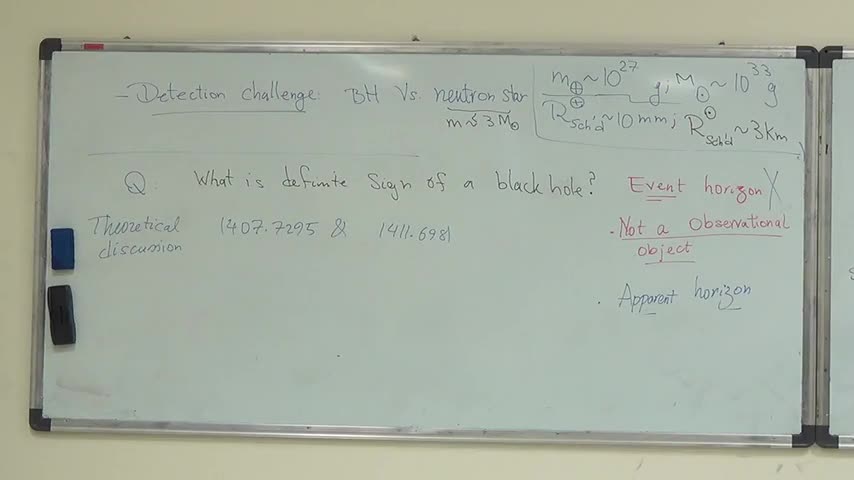 - Detection challenge: BH Vs. neutron star
m ≲ 3 M⊙
m⊕ ~ 10^27 g; M⊙ ~ 10^33 g
R⊕Sch'd ~ 10 mm; R⊙Sch'd ~ 3 km
Q: What is definite Sign of a black hole? Event horizon X
Theoretical discussion 1407.7295 & 1411.6981
. Not a Observational
object
. Apparent horizon